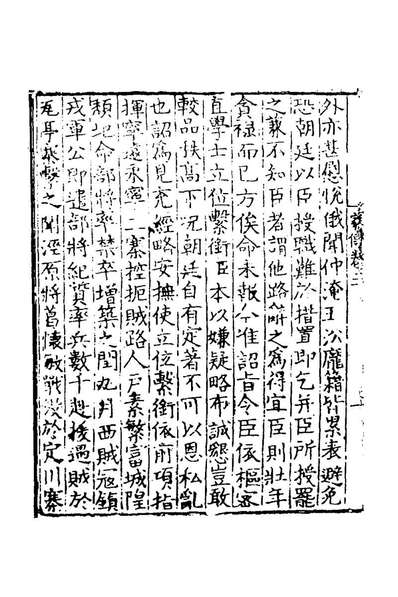 外亦甚慰悅俄聞仲淹王沿龐籍皆累表避免
恐朝廷以臣授職難以措置即乞并臣所授罷
之蓋不知臣者謂他路辭之為得宜臣則壯年
貪祿而已方俟命未報今准詔旨令臣依樞密
直學士立位繫銜臣本以嫌疑略布誠懇豈敢
較品秩高下況朝廷自有定著不可以恩私亂
也詔為見充經略安撫使立位繫銜依前項指
揮寧遠永寧二寨控扼賊路人戶素繁富城隍
頹圮命部將率禁卒增築之閏九月西賊寇鎮
戎軍公即遣部將紀質率兵數千趨援遇賊於
瓦亭擊之聞涇原將葛懷敏戰沒於定川寨